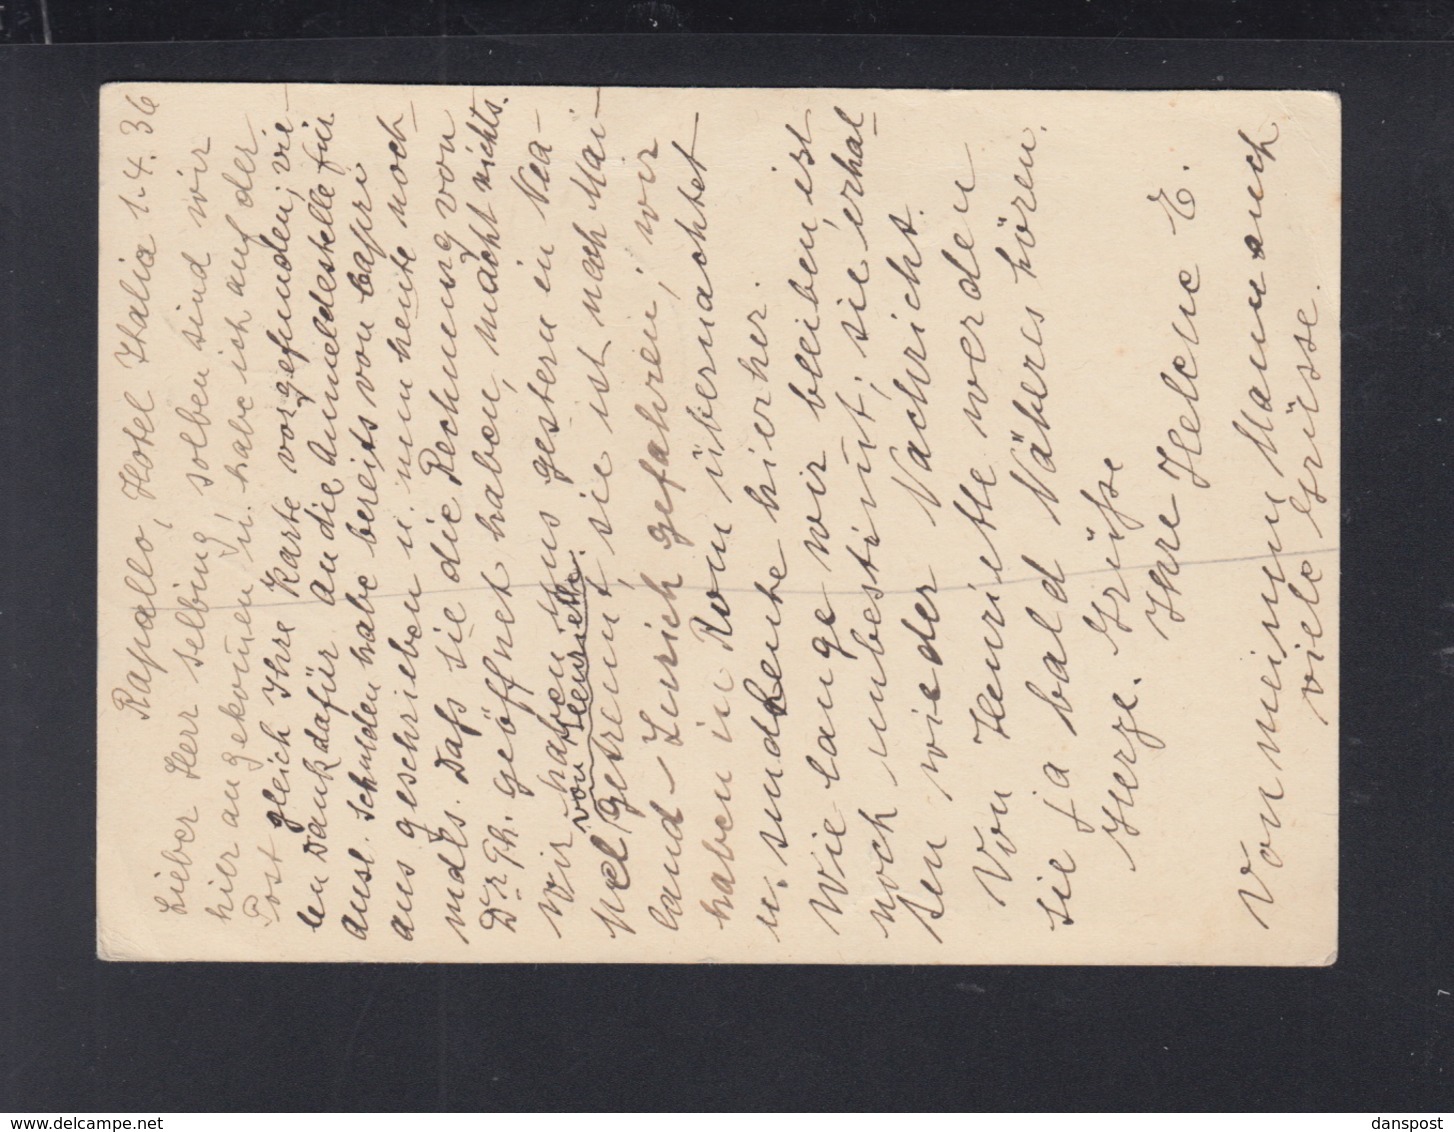 Rapallo, Hotel Italia 1.4.36
Lieber Herr Selbing, soeben sind wir
hier angekom̅en u. habe ich auf der
Post gleich Ihre Karte vorgefunden, vie-
len Dank dafür. An die Anmeldestelle für
Ausl. Schulden habe bereits von Capri
aus geschrieben u. nun heute noch-
mals. Dass sie die Rechnung von
Dr. Ph. geöffnet haben, macht nichts.
Wir haben uns gestern in Nea-
von Henriette
pel getrennt, sie ist nach Mai-
land - Zürich gefahren, wir
haben in Rom übernachtet
u. sind heute hierher.
Wie lange wir bleiben ist
noch unbestim̅t, sie erhal-
ten wieder Nachricht.
Von Henriette werden
sie ja bald Näheres hören.
Herze. Grüsse
Ihre Helene E.
Von meinem Mann auch
viele Grüsse.
danspost
delcampe.net